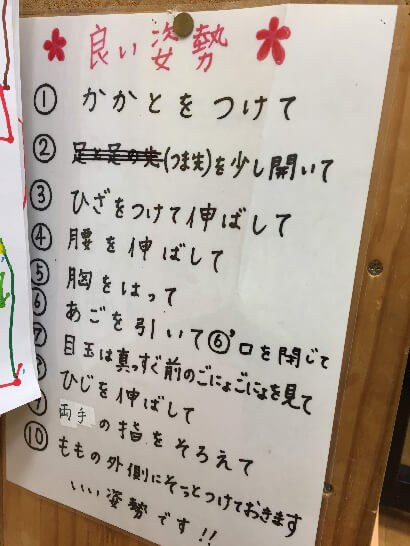 良い姿勢
① かかとをつけて
② 足と足の先(つま先)を少し開いて
③ ひざをつけて伸ばして
④ 腰を伸ばして
⑤ 胸をはって
⑥ あごを引いて⑥'口を閉じて
⑦ 目玉は真っすぐ前のごにょごにょを見て
ひじを伸ばして
両手の指をそろえて
⑩ ももの外側にそっとつけておきます
いい姿勢です!!